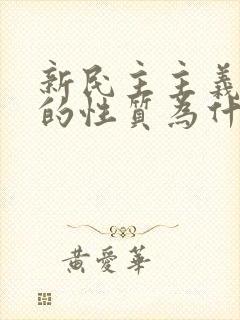 新民主主義
的性質為什
黃愛華